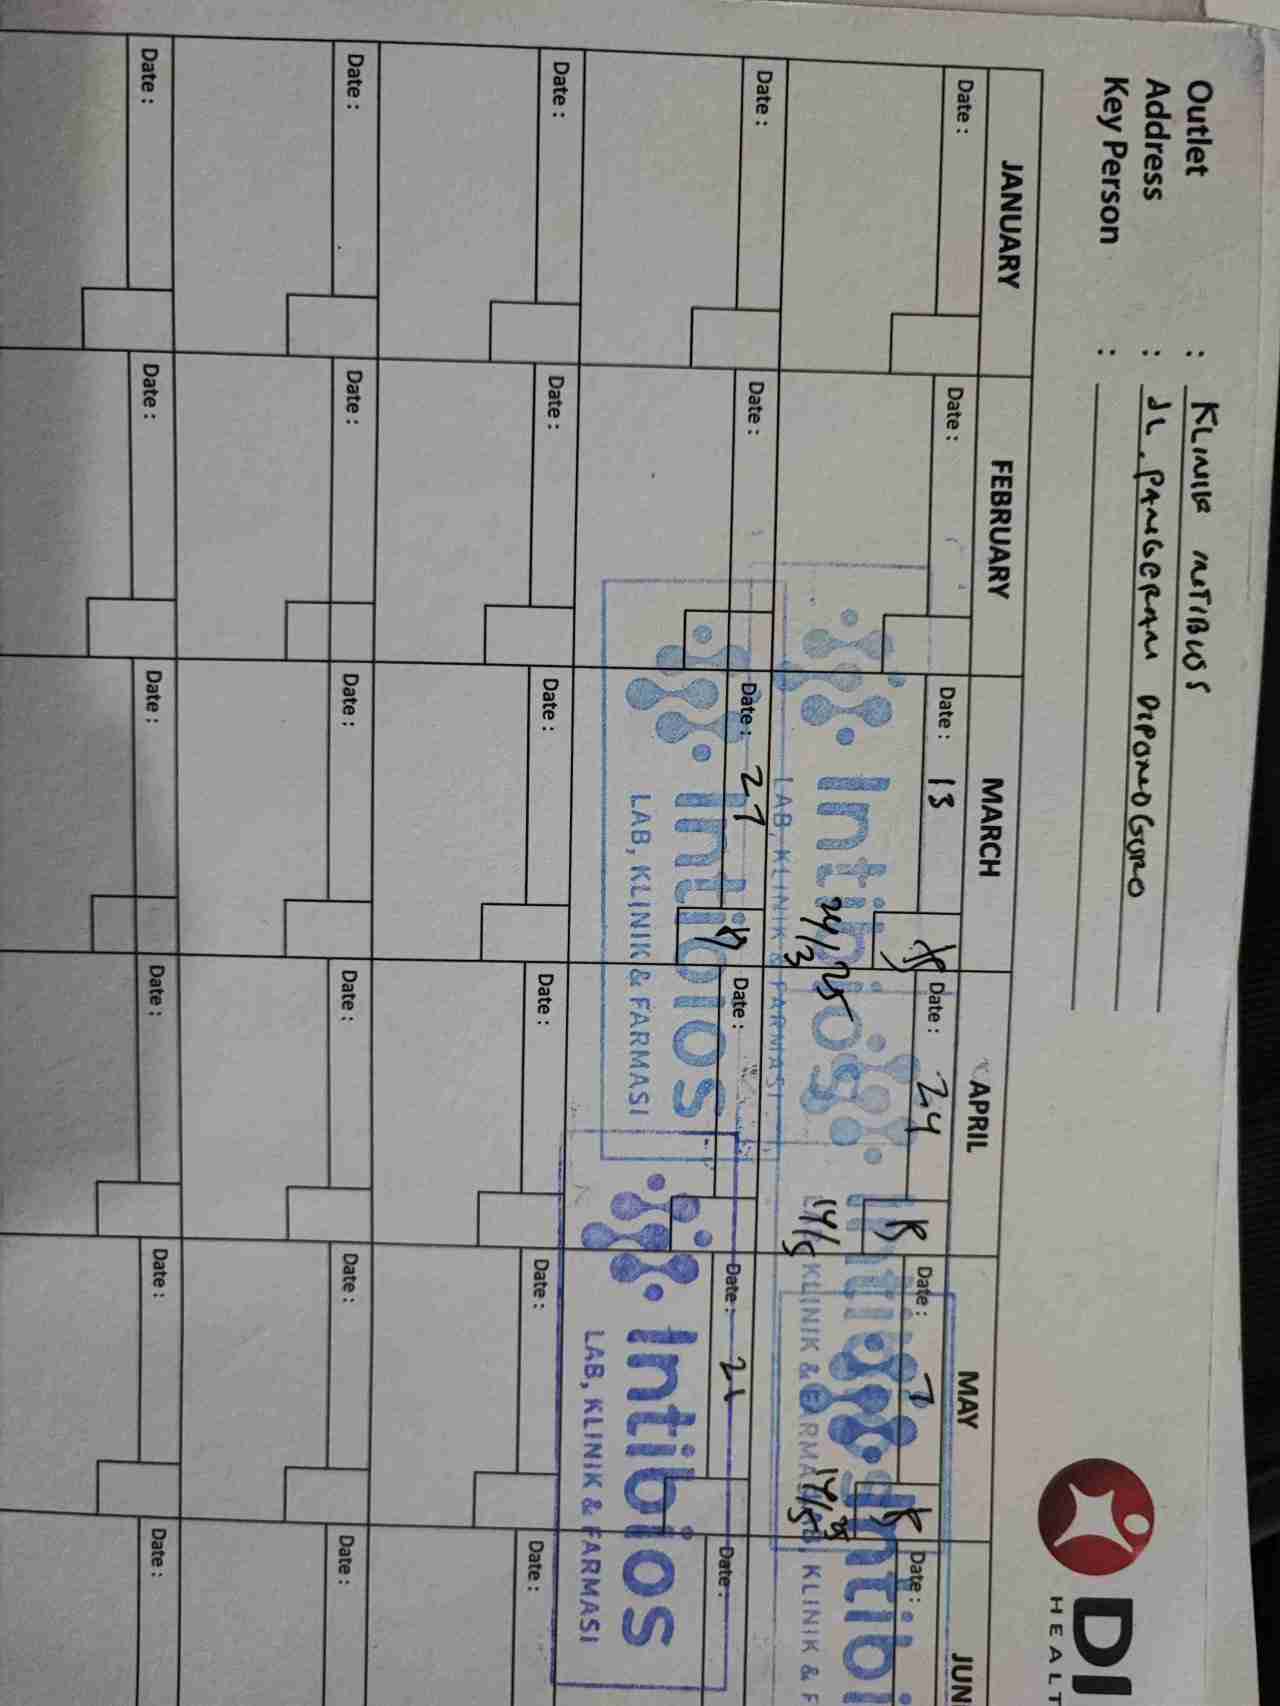 Outlet : KLINIK INTIBIOS
Address : JL. PANGERAN DIPONOGORO
Key Person :
DI
HEALT
JANUARY FEBRUARY MARCH APRIL MAY JUN
Date : Date : Date : 13 Date : 24 Date : 7 Date :
Intibios Intibios Intibi
24/3 25 14/5 14/5 25
LAB, KLINIK & FARMASI KLINIK & FARMA LAB, KLINIK & F
Date : Date : Date : 27 Date : Date : 21 Date :
Intibios Intibios
LAB, KLINIK & FARMASI LAB, KLINIK & FARMASI
Date : Date : Date : Date : Date : Date :
Date : Date : Date : Date : Date : Date :
Date : Date : Date : Date : Date : Date :